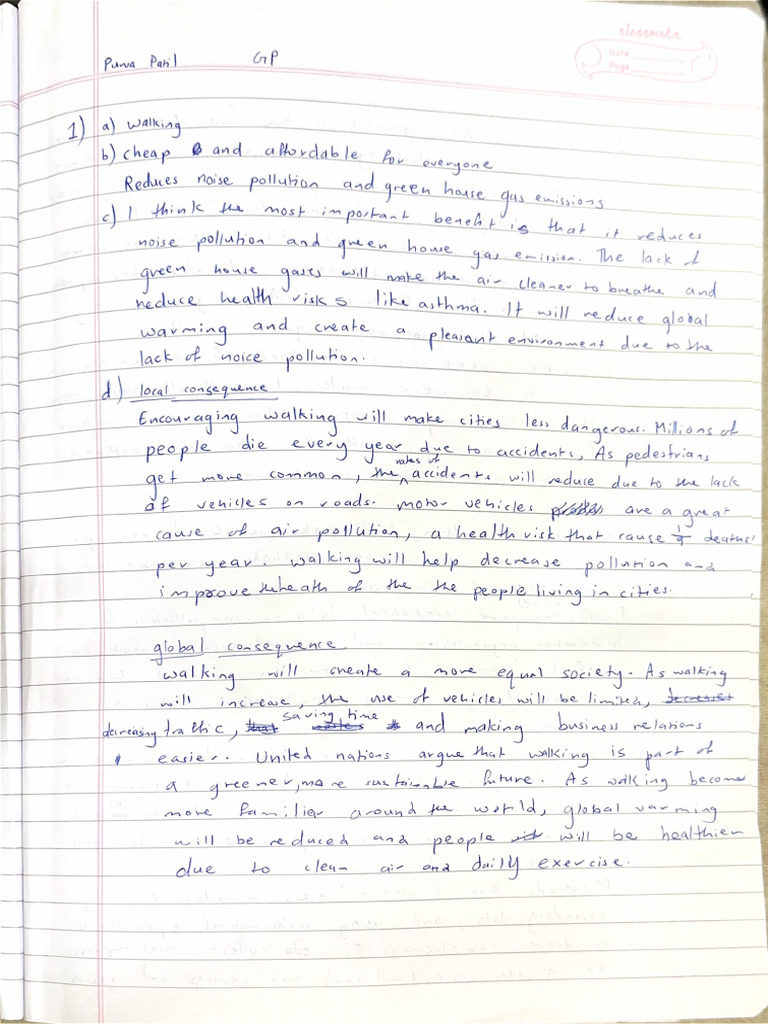 classmate
Date
Page
Purva Patil GP
1) a) walking
b) cheap and affordable for everyone
Reduces noise pollution and green house gas emissions
c) I think the most important benefit is that it reduces
noise pollution and green house gas emission. The lack of
green house gases will make the air cleaner to breathe and
reduce health risks like asthma. It will reduce global
warming and create a pleasant environment due to the
lack of noice pollution.
d) local consequence
Encouraging walking will make cities less dangerous. Millions of
people die every year due to accidents, As pedestrians
get more common, the rates of accidents will reduce due to the lack
of vehicles on roads. Motor vehicles are a great
cause of air pollution, a health risk that cause deaths
per year. walking will help decrease pollution and
improve the heath of the the people living in cities.
global consequence
walking will create a more equal society. As walking
will increase, the use of vehicles will be limited,
decreasing traffic, saving time and making business relations
easier. United nations argue that walking is part of
a greener, more sustainable future. As walking become
more familier around the world, global warming
will be reduced and people will be healthier
due to clean air and daily exercise.